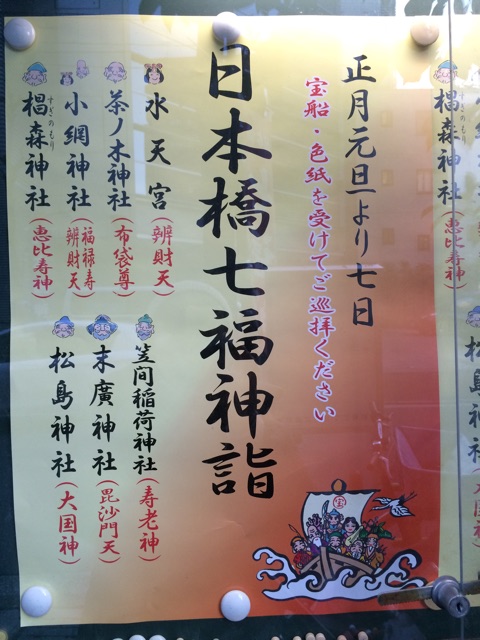 正月元旦より七日
宝船・色紙を受けてご巡拝ください
日本橋七福神詣
水天宮(辨財天)
茶ノ木神社(布袋尊)
小網神社(福禄寿 辨財天)
椙森神社(恵比寿神)
すぎのもり
笠間稲荷神社(寿老神)
末廣神社(毘沙門天)
松島神社(大国神)
宝
椙森神社(恵比寿神)
松島神社